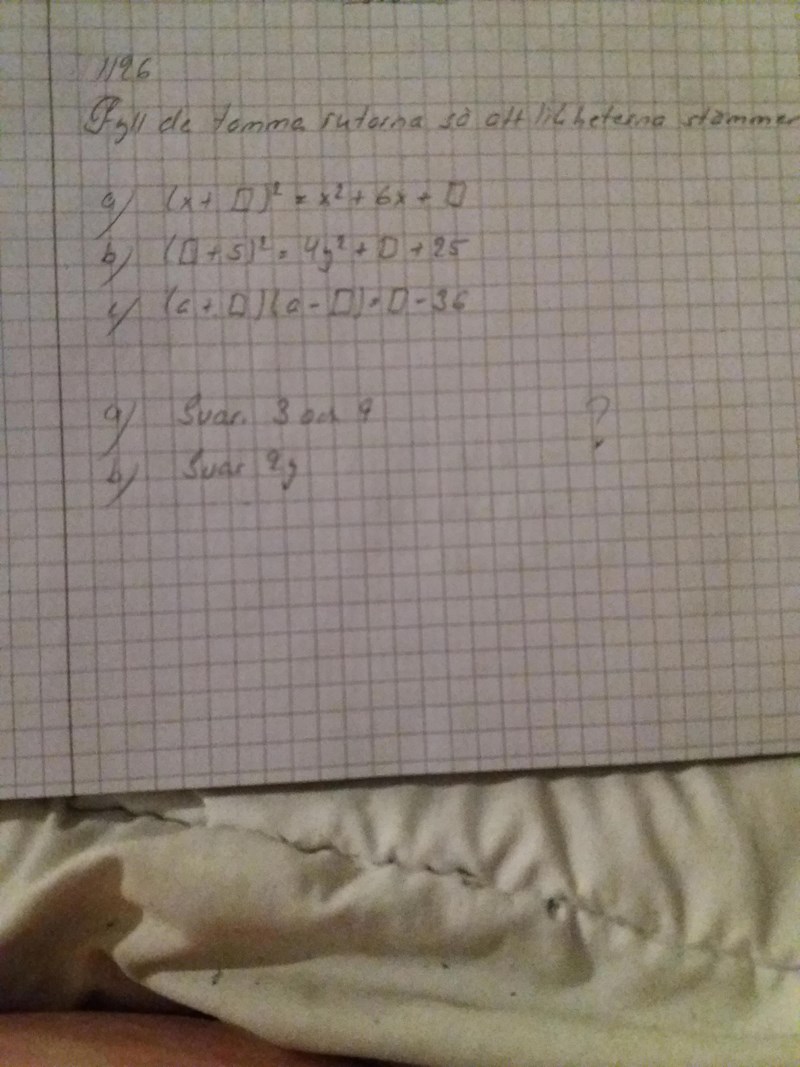 1126
Fyll de tomma rutorna så att likheterna stämmer
a) (x + □)² = x² + 6x + □
b) (□ + 5)² = 4y² + □ + 25
c) (a + □)(a - □) = □ - 36
a) Svar. 3 och 9 ?
b) Svar 2y